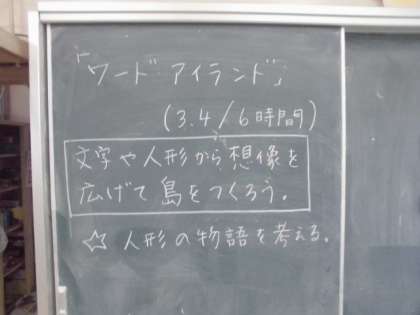 「ワードアイランド」
(3.4/6時間)
文字や人形から想像を
広げて島をつくろう。
☆人形の物語を考える。